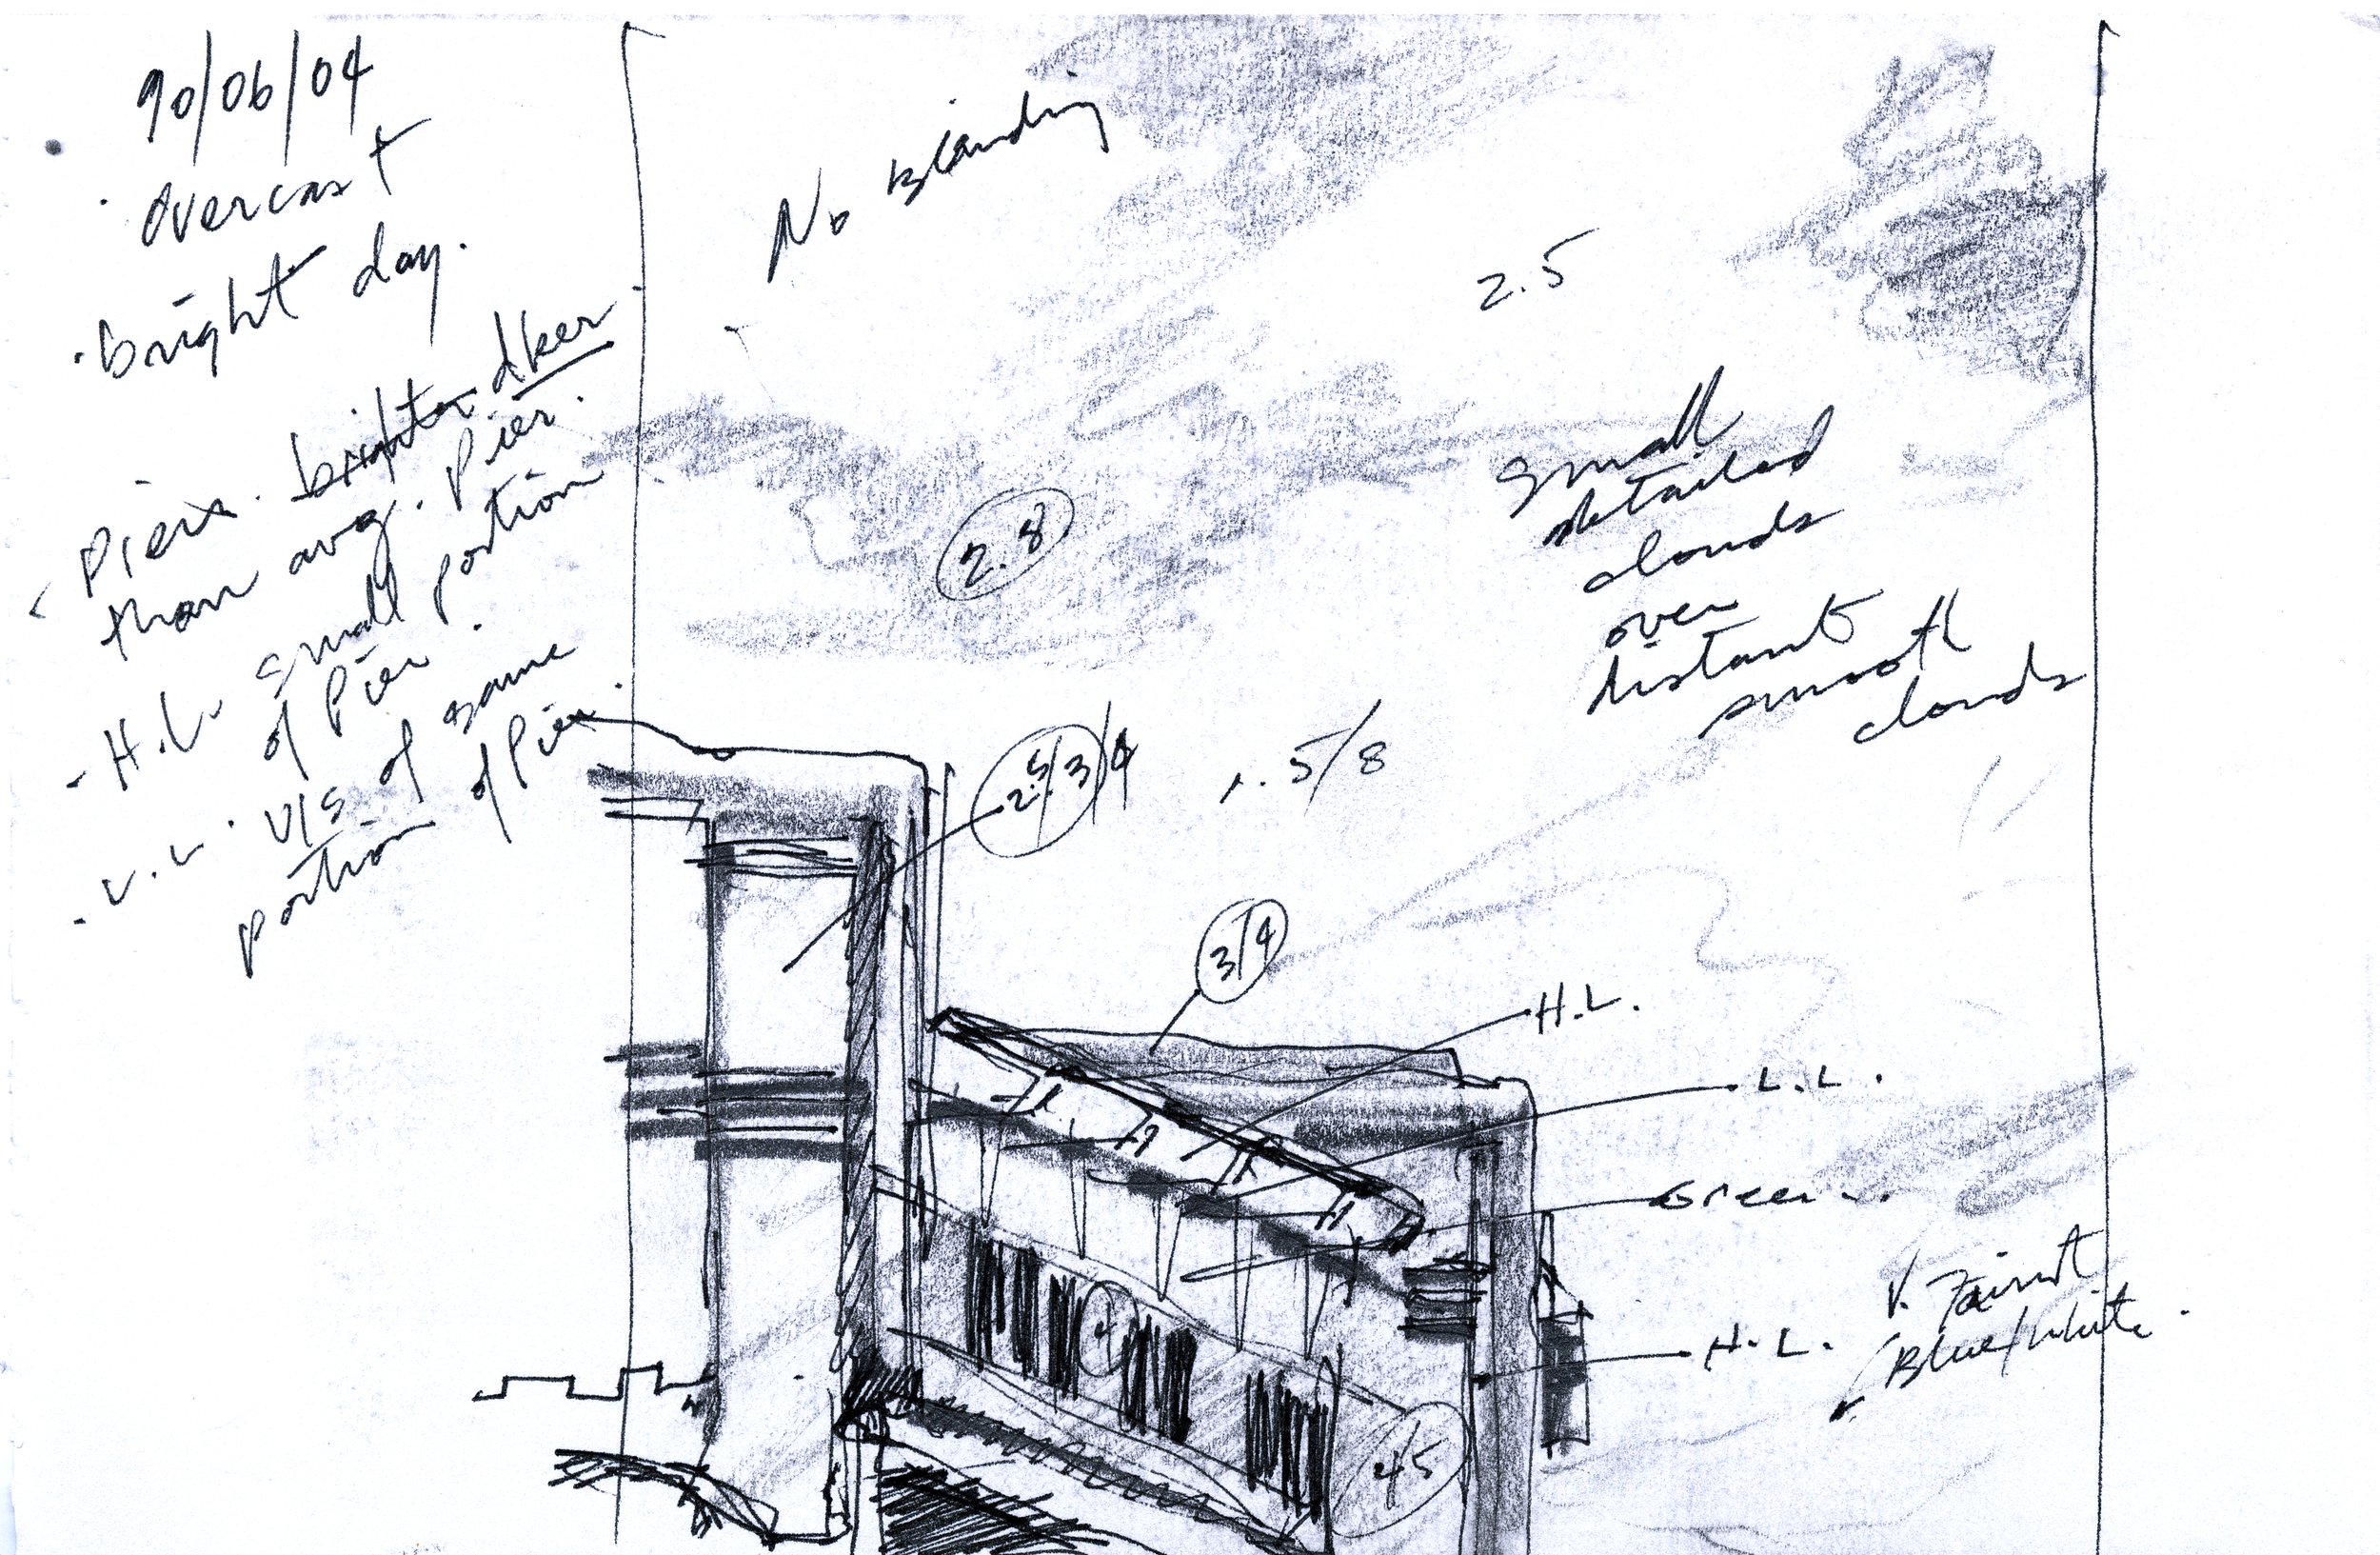 90/06/04
overcast
bright day.
Piers. brighter dker
than avg. Pier.
H.L. small portion
of Pier.
L.L. U/S of same
portion of Pier.
No Blanding
2.5
2.8
small
detailed
clouds
over
distant
smooth
clouds
2.5/3/4
1.5/8
3/4
H.L.
L.L.
Green
H.L.
V. Faint
Blue/White.
4
4/5